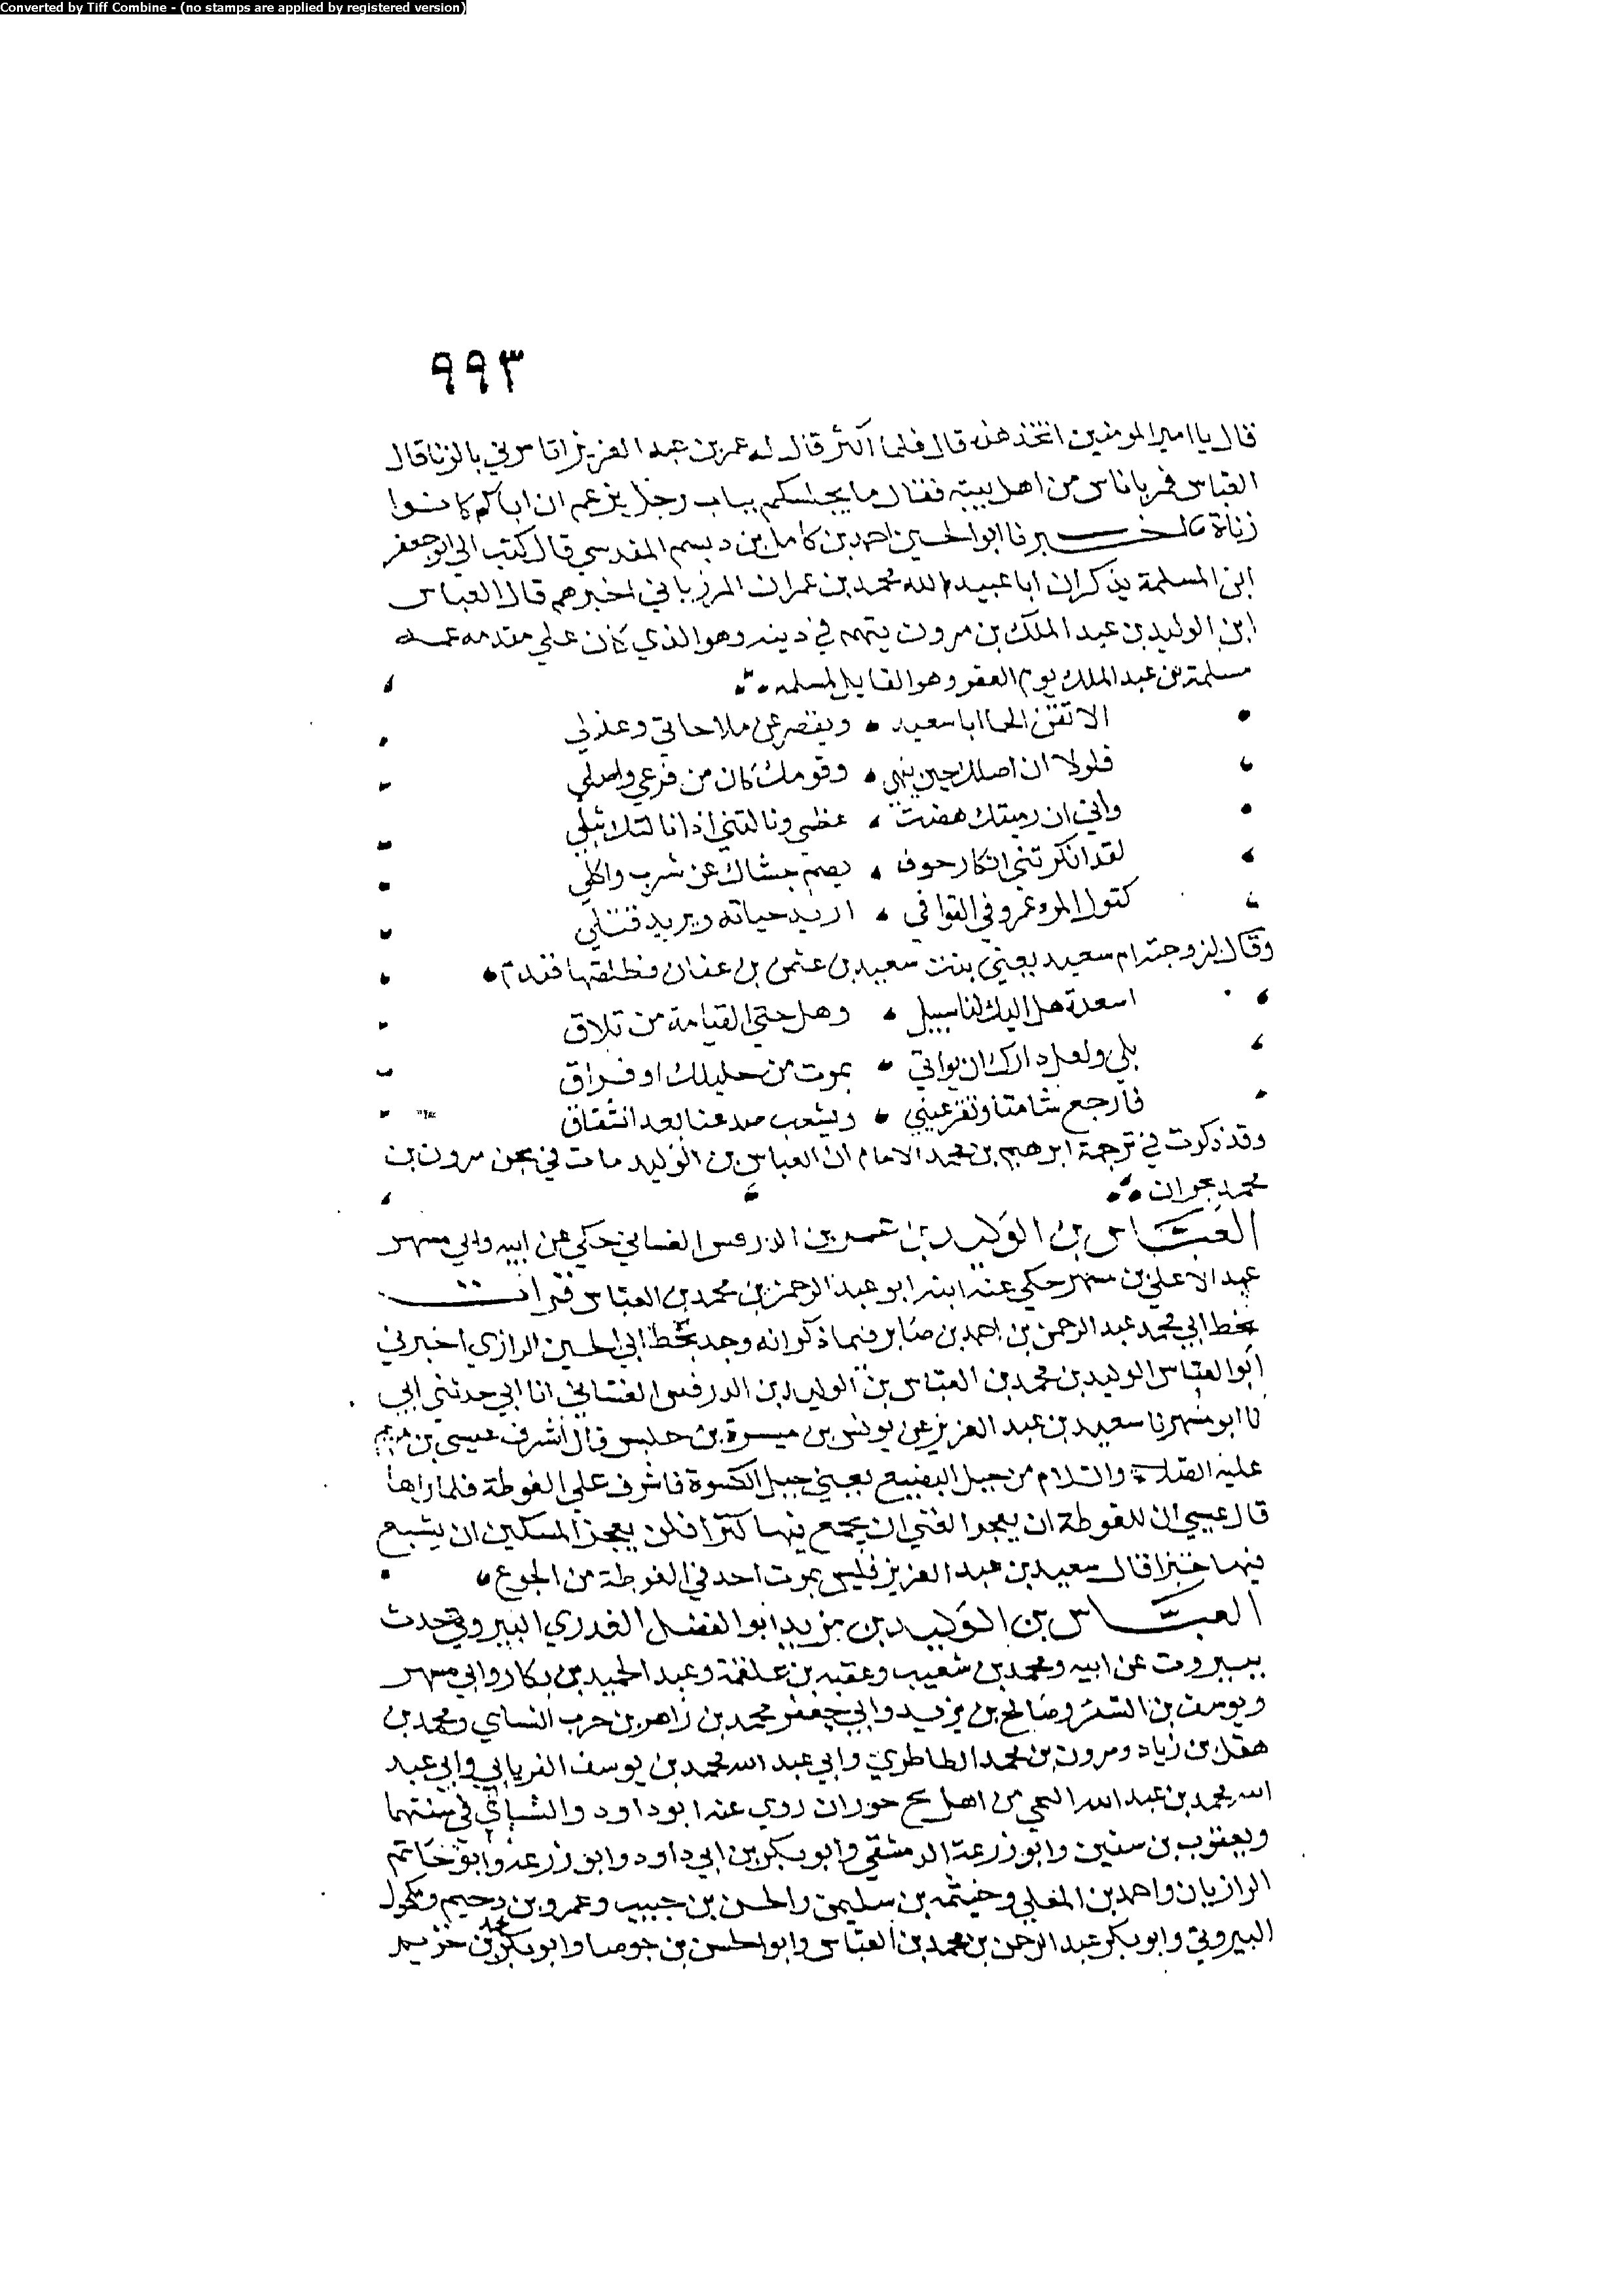 Converted by Tiff Combine - (no stamps are applied by registered version)
٩٩٣
قال يا امير المومنين اتخذ هذه قال فلما اكثر قال له عمر بن عبد العزيز اتامرني بالزنا قال
العباس فمر باناس من اهل بيته فقال ما يجلسكم بباب رجل يزعم ان اباكم كانوا
زناة انا ابو الحسين احمد بن كامل بن ديسم المقدسي قال كتب الي ابو جعفر
ابن المسلمة يذكر ان ابا عبيد الله محمد بن عمران المرزباني اخبرهم قال العباس
ابن الوليد بن عبد الملك بن مرون يتهم في دينه وهو الذي كان علي مقدمه عمه
مسلمة بن عبد الملك يوم العقر وهو القايل لمسلمه
الا تقنى الحيا ابا سعيد وتقصر عن ملاحاتي وعذلي
فلولا ان اصلك حين ينمي وقومك كان من فرعي واصلي
واني ان رميتك هضت عظمي ونالتني اذا نالتك نبلي
لقد انكرتني انكار خوف يضم حشاك عن شرب واكلي
كقول المرء عمرو في القوافي اريد حياته ويريد قتلي
وقال لزوجته ام سعيد يعني بنت سعيد بن عثمن بن عفان وطلقها فندم
اسعدة هل اليك لنا سبيل وهل حتي القيامة من تلاق
بلي ولعل دارك ان تواتي بموت من حليلك او فراق
فارجع شامتا وتقر عيني ويشعب صدعنا بعد انشقاق
وقد ذكرت في ترجمة ابرهيم بن محمد الامام ان العباس بن الوليد مات في سجن مرون بن
محمد بحران
العباس بن الوليد بن عمر بن الدرفس الغساني حكي عن ابيه وابي مسهر
عبد الاعلي بن مسهر حكي عنه ابنه ابو عبد الرحمن بن محمد بن العباس قرات
بخط ابي محمد عبد الرحمن بن احمد بن صابر فيما ذكر انه وجد بخط ابي الحسين الرازي اخبرني
ابو العباس الوليد بن محمد بن العباس بن الوليد بن الدرفس الغساني انا ابي حدثني ابي
نا ابو مسهر نا سعيد بن عبد العزيز عن يونس بن ميسرة بن حلبس قال اشرف عيسى بن مريم
عليه الصلاة والسلام من جبل البضيع يعني جبل الكسوة فاشرف علي الغوطة فلما راها
قال عيسي ان للغوطة ان يعجز الغني ان يجمع فيها كنزا فلن يعجز المسكين ان يشبع
فيها خبزا قال سعيد بن عبد العزيز فليس يموت احد في الغوطة من الجوع
العباس بن الوليد بن مزيد ابو الفضل العذري البيروتي حدث
ببيروت عن ابيه ومحمد بن شعيب وعقبه بن علقمة وعبد الحميد بن بكار وابي مسهر
ويوسف بن السفر وصالح بن يزيد وابي جعفر محمد بن زاهر بن حرب النساي ومحمد بن
هقل بن زياد ومرون بن محمد الطاطري وابي عبد الله محمد بن يوسف الفريابي وابي عبد
الله محمد بن عبد الله من اهل حوران روي عنه ابو داود والنساي في سننهما
ويعقوب بن سفين وابو زرعة الدمشقي وابو بكر بن ابي داود وابو زرعة وابو حاتم
الرازيان واحمد بن المعلي وخيثمه بن سليمن والحسن بن حبيب وعمرو بن دحيم ومكحول
البيروتي وابو بكر عبد الرحمن بن محمد بن العباس وابو الحسن بن جوصا وابو بكر محمد بن خزيمه